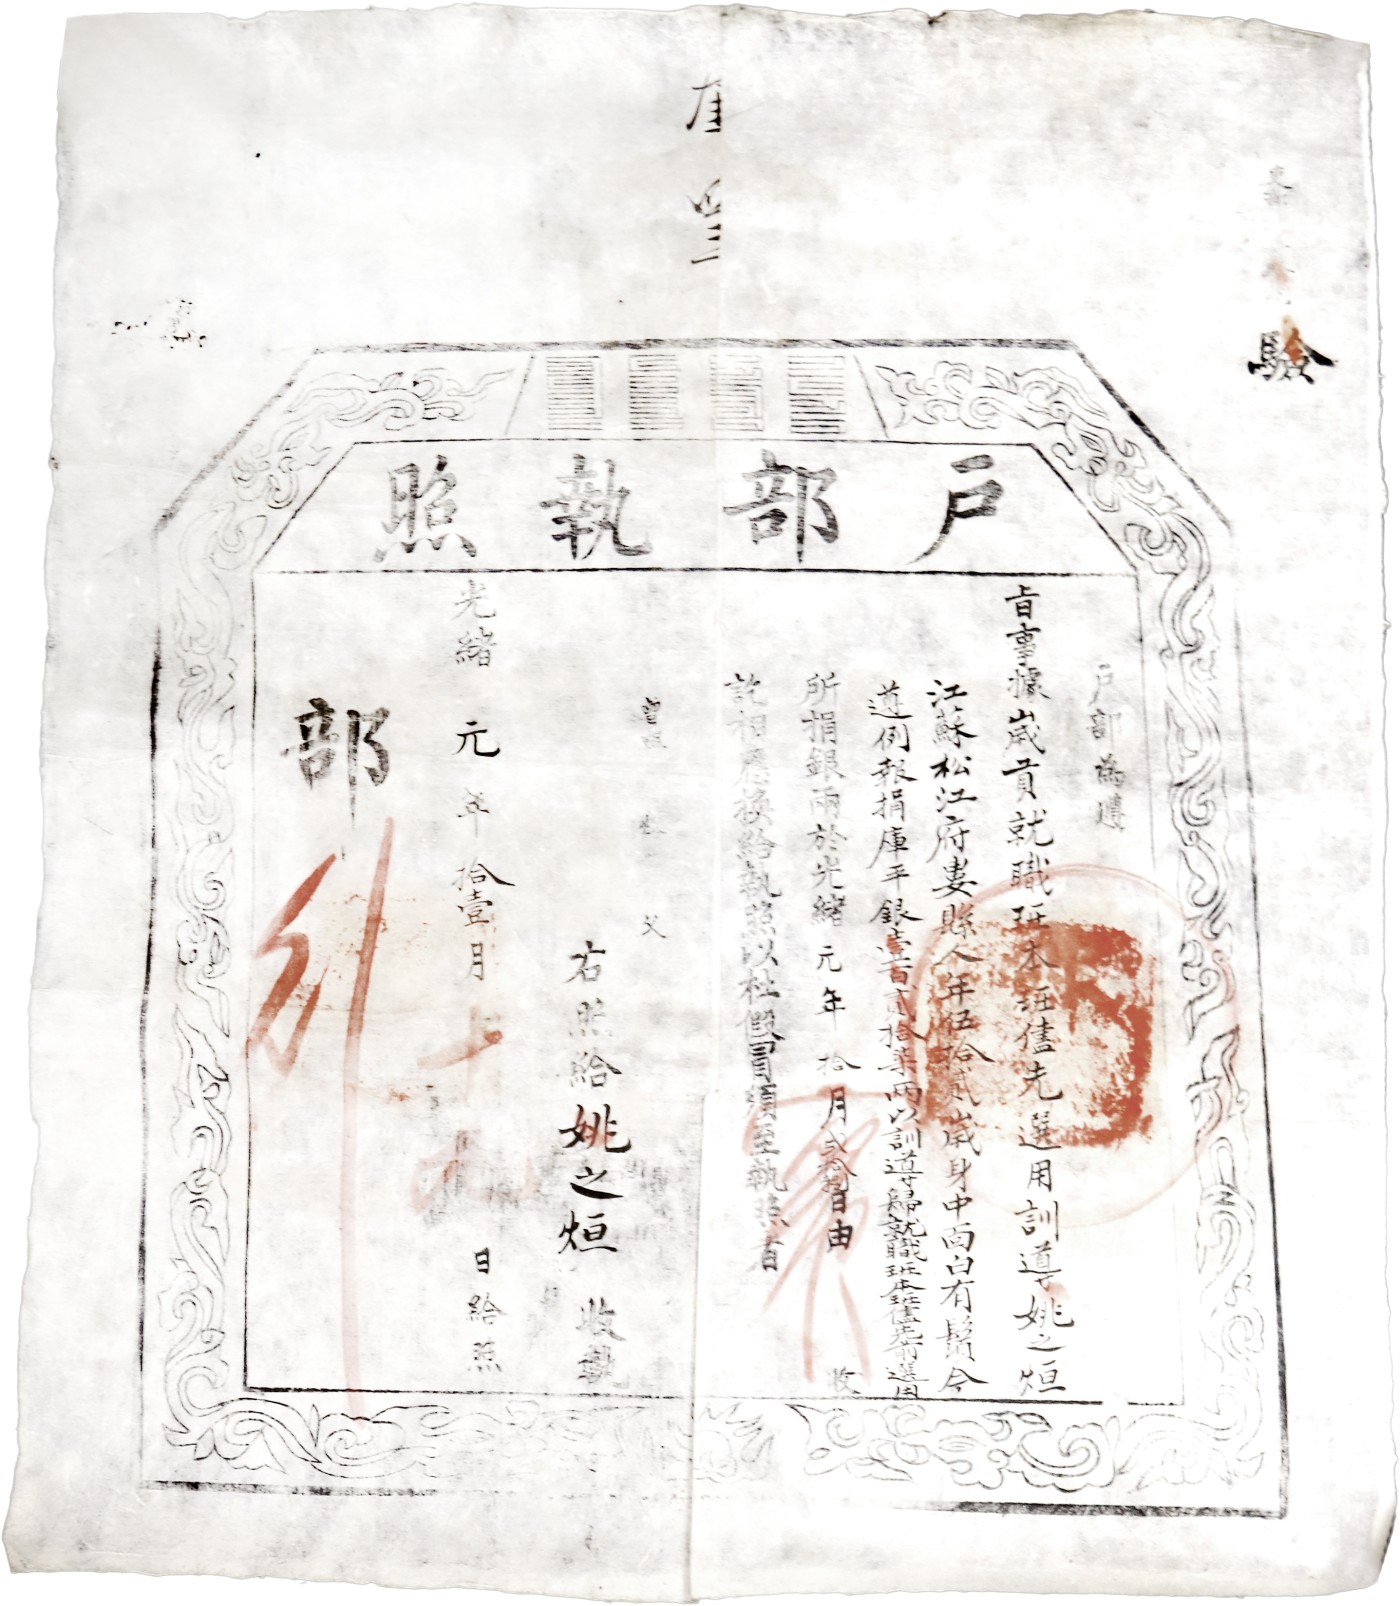 驗
戶部執照
戶部為遵
旨事據歲貢就職班本班儘先選用訓導姚之烜
江蘇松江府婁縣人年伍拾貳歲身中面白有鬚今
遵例報捐庫平銀壹百貳拾柒兩以訓導歸就職班本班儘先前選用
所捐銀兩於光緒元年拾月貳拾日由收
訖相應換給執照以杜假冒須至執照者
曾祖 祖 父
右照給姚之烜收執
光緒元年拾壹月十九日給照
部